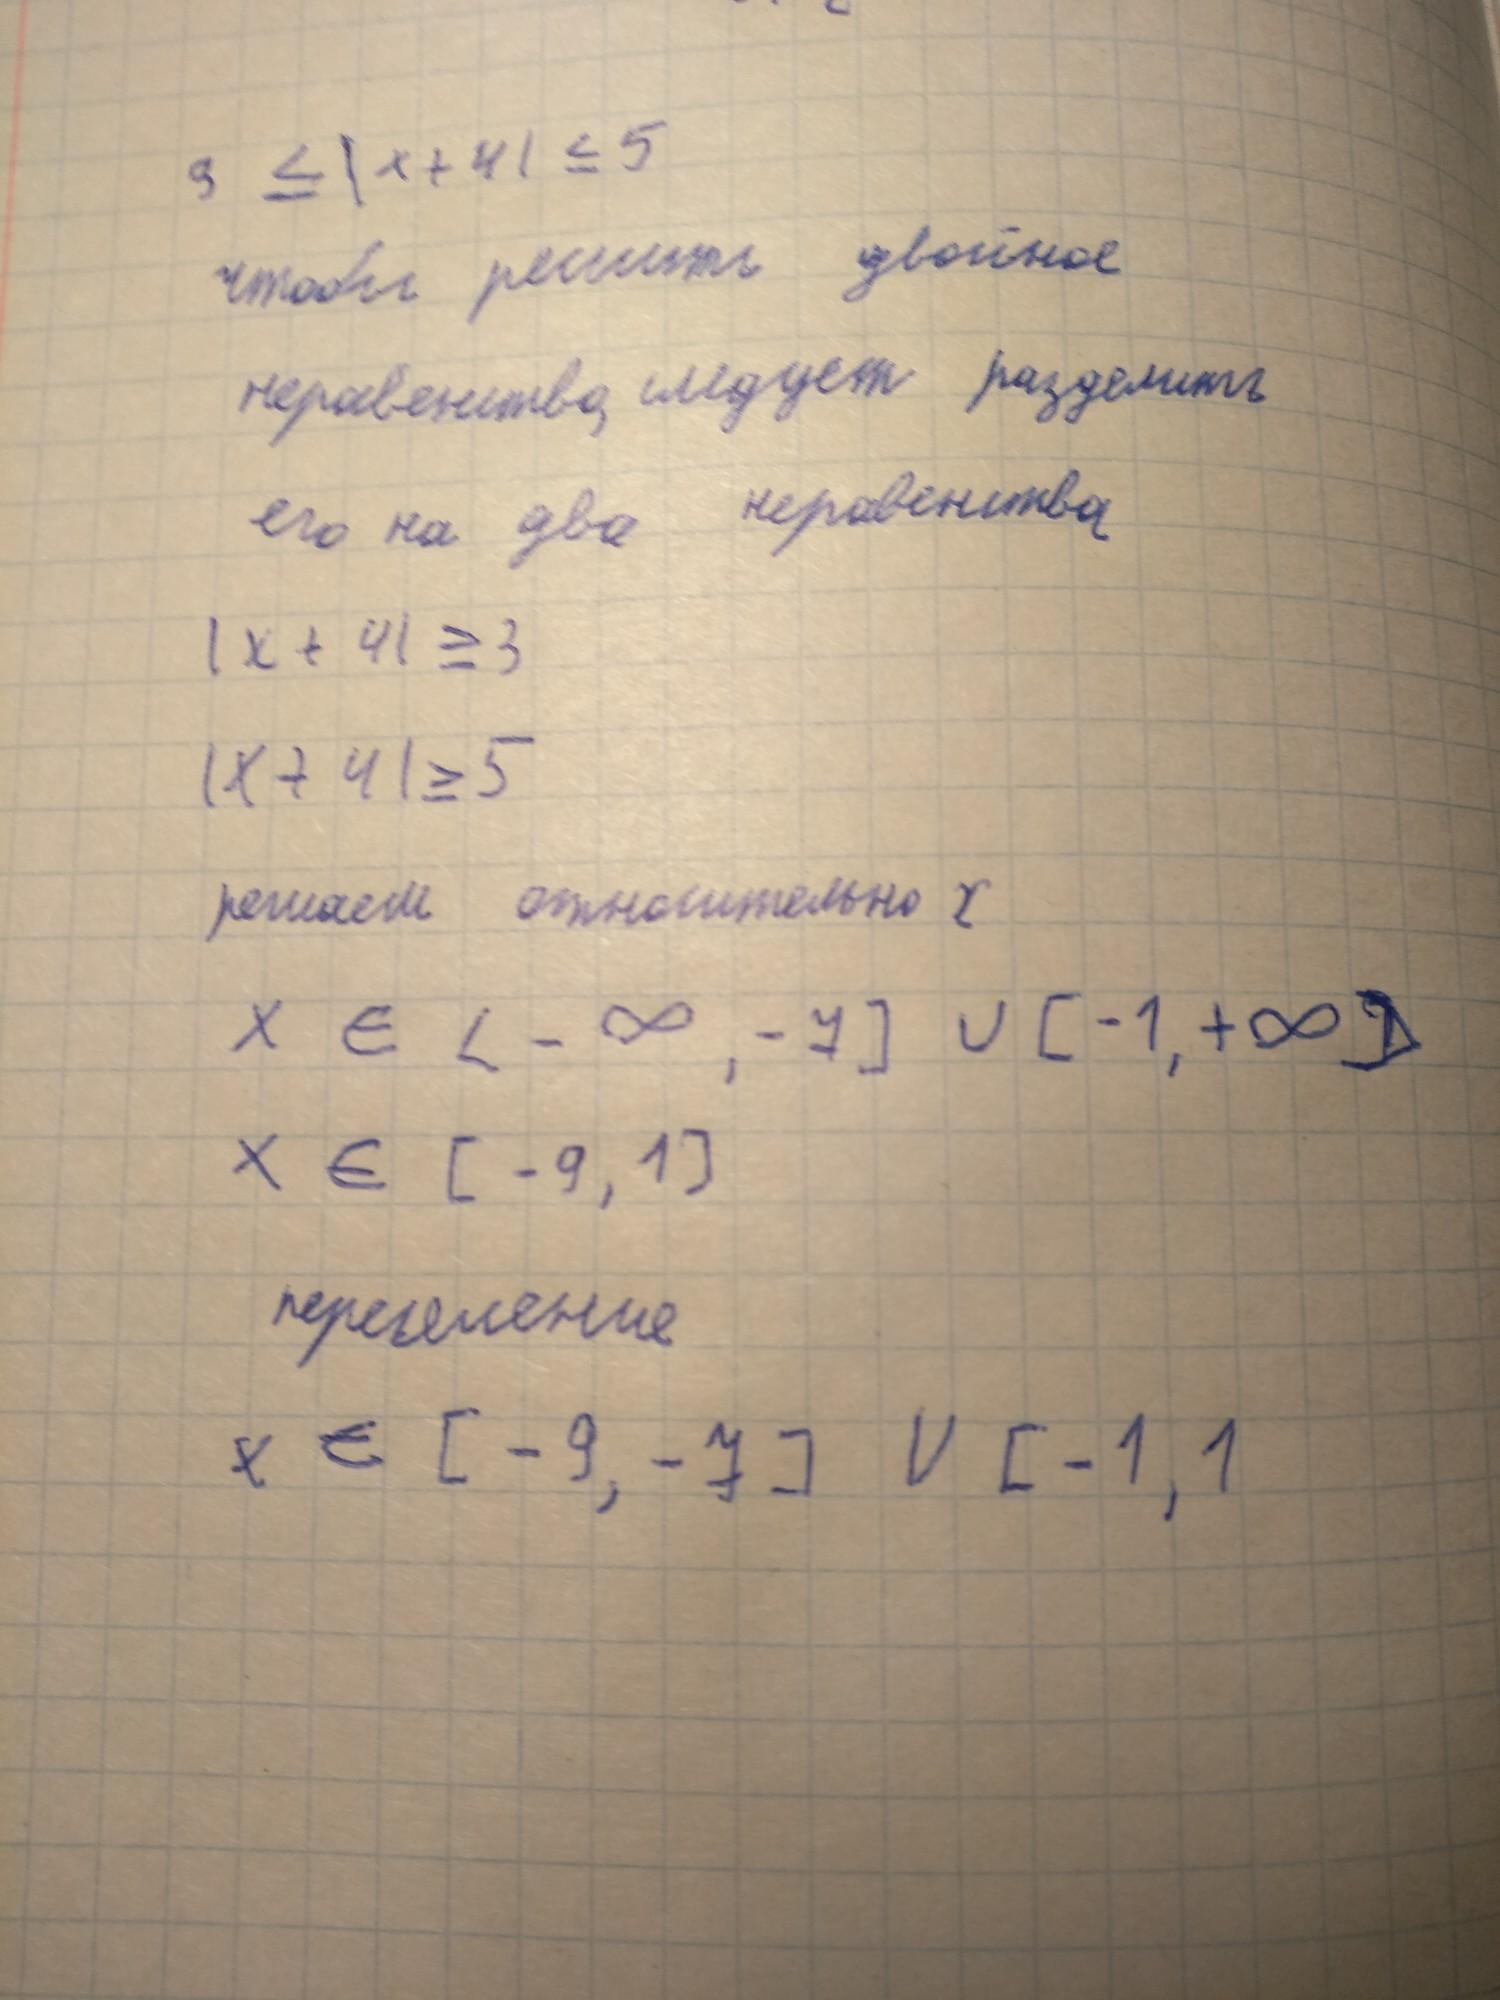 3 ≤ |x + 4| ≤ 5
чтобы решить двойное
неравенства, следует разделить
его на два неравенства
|x + 4| ≥ 3
|x + 4| ≥ 5
решаем относительно x
x ∈ < - ∞, -7] ∪ [-1, +∞>
x ∈ [-9, 1]
переселение
x ∈ [-9, -7] ∪ [-1, 1